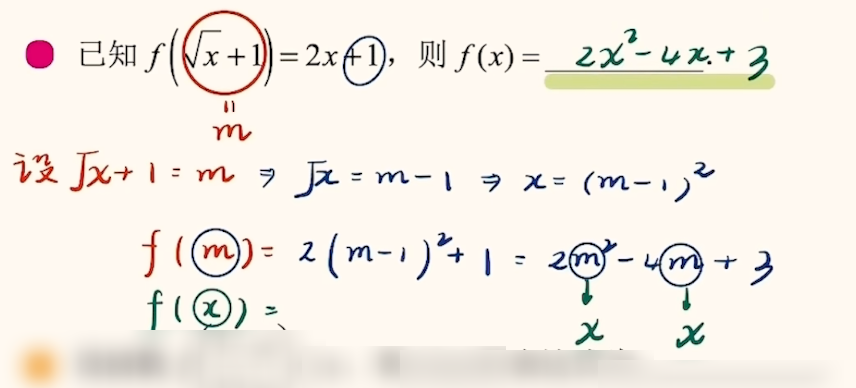 已知 f(√x+1)=2x+1，则 f(x)= 2x²-4x+3
=
m
设 √x+1=m ⇒ √x=m-1 ⇒ x=(m-1)²
f(m)=2(m-1)²+1=2m²-4m+3
f(x)=
x x